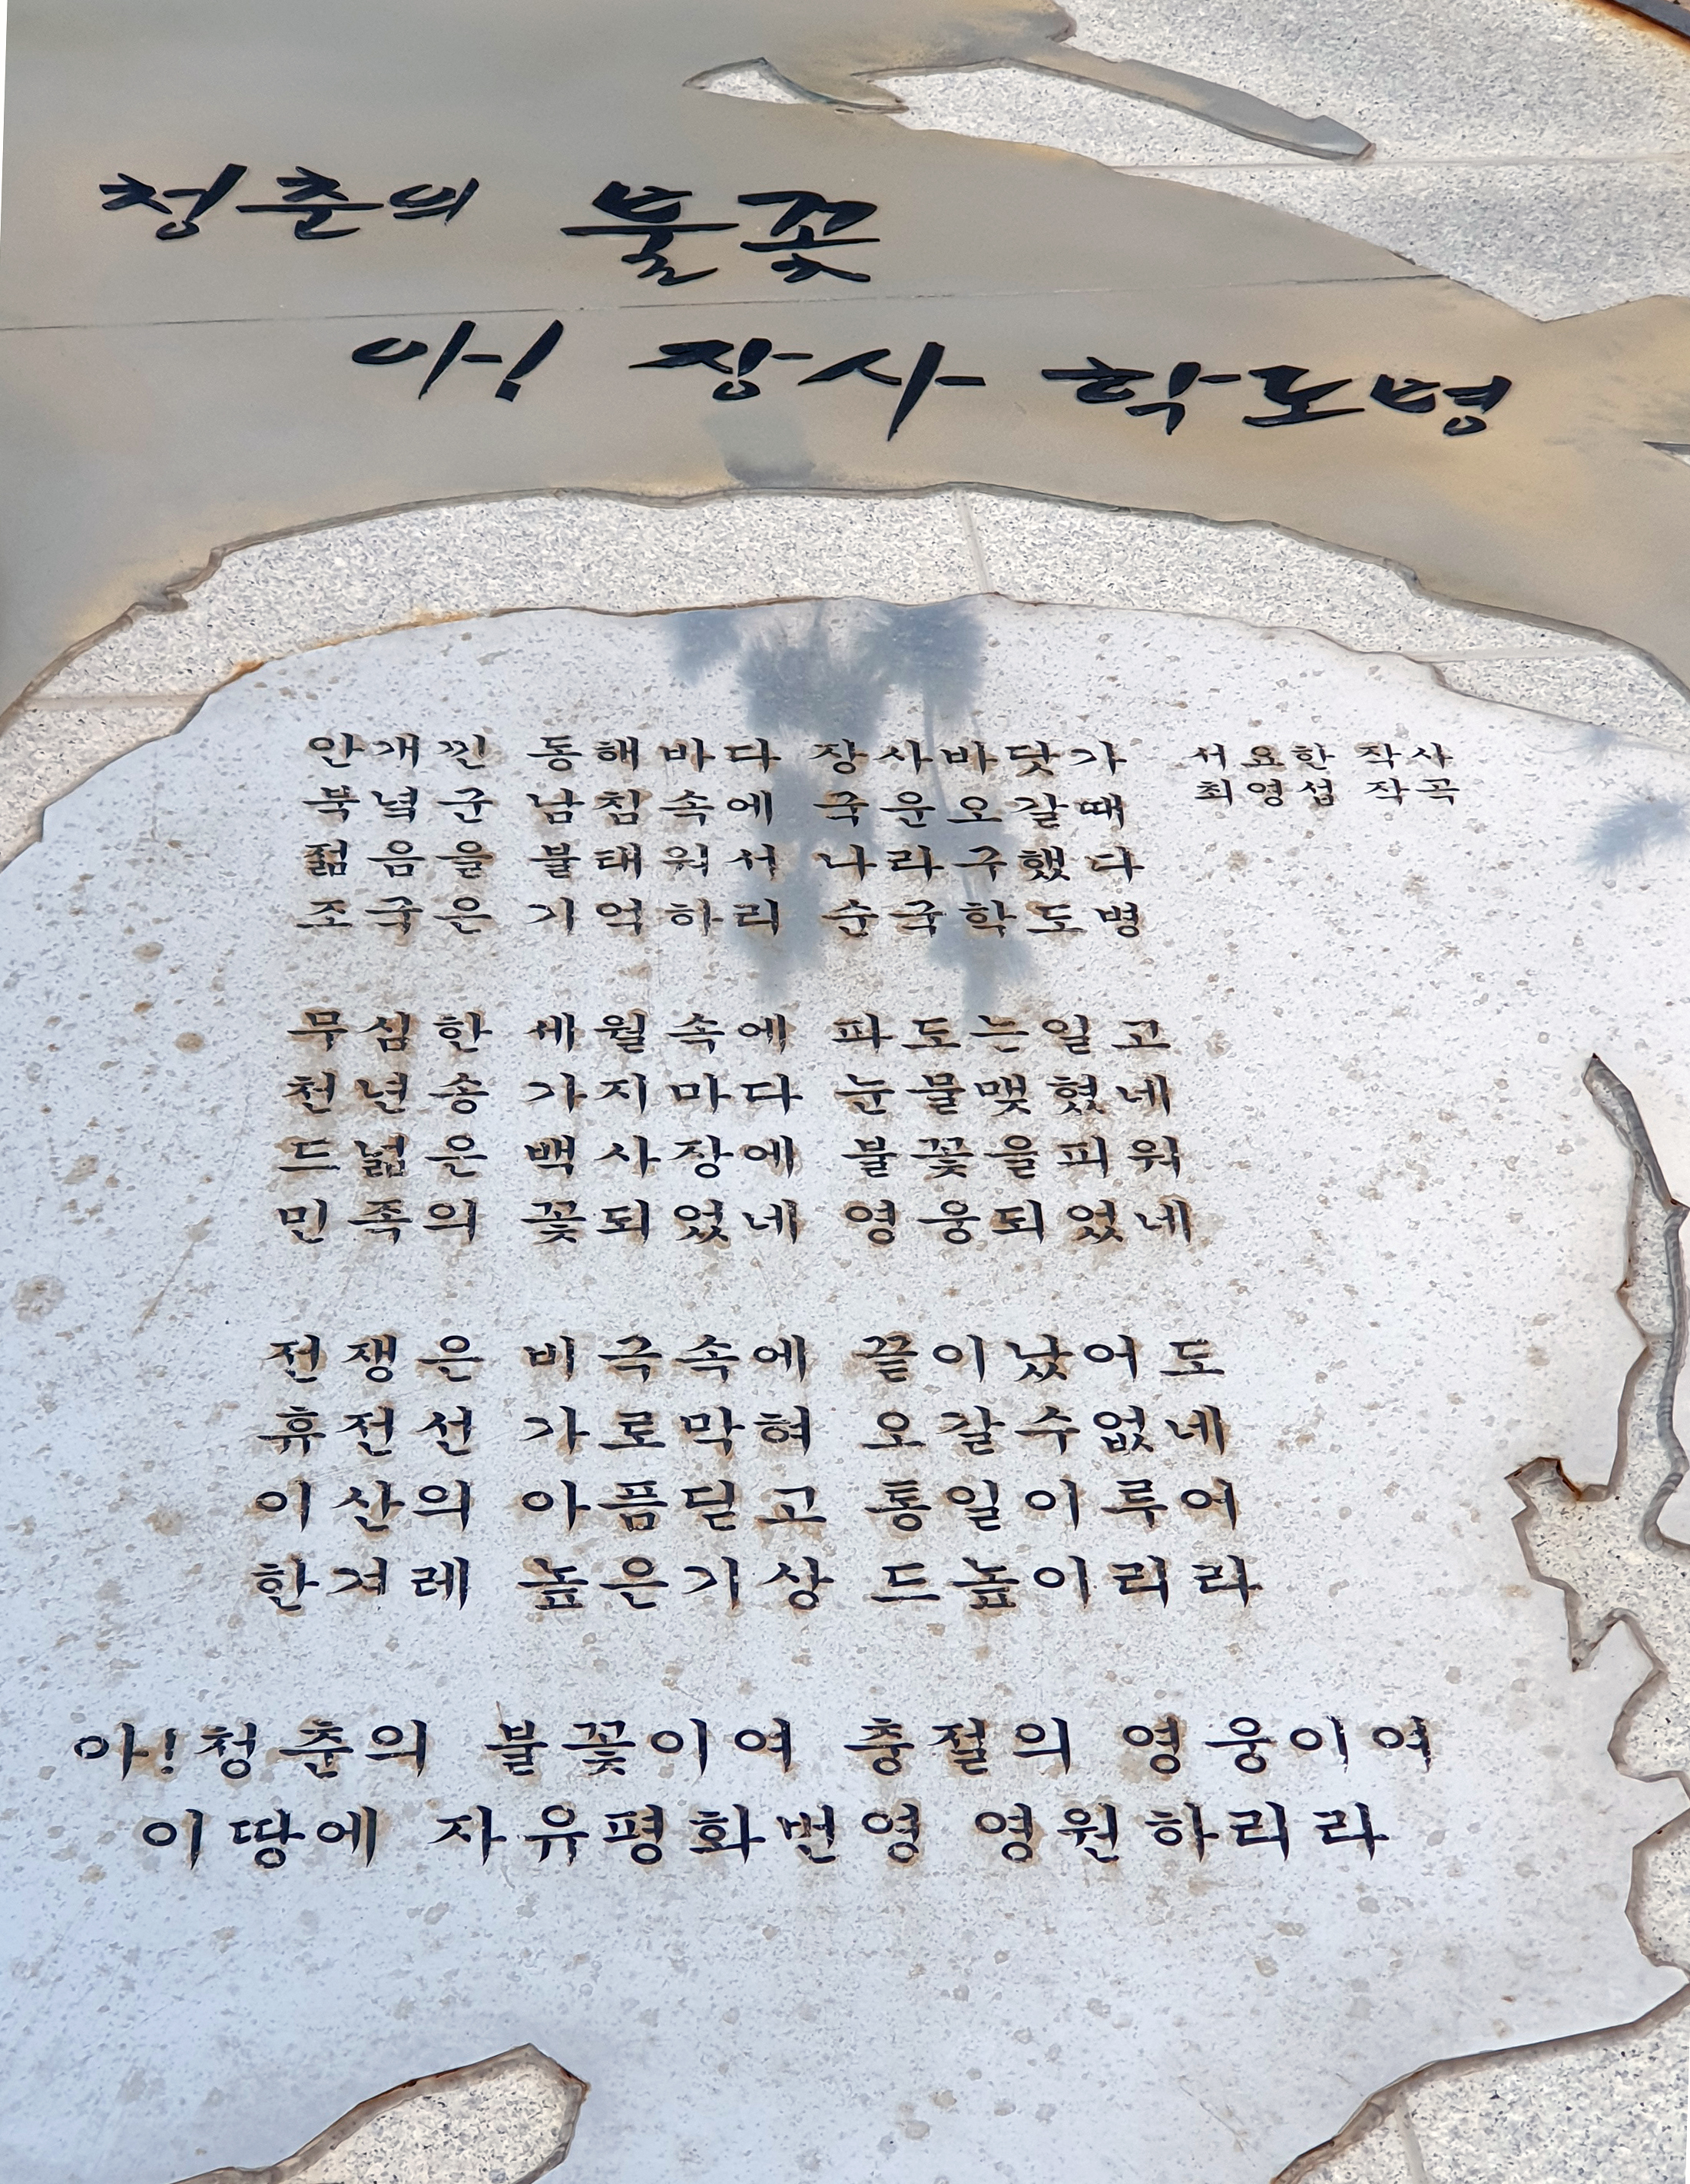 청춘의 불꽃
아! 장사 학도병
안개낀 동해바다 장사바닷가
서요한 작사
최영섭 작곡
북녘군 남침속에 국운오갈때
젊음을 불태워서 나라구했다
조국은 기억하리 순국학도병
무심한 세월속에 파도는일고
천년송 가지마다 눈물맺혔네
드넓은 백사장에 불꽃을피워
민족의 꽃되었네 영웅되었네
전쟁은 비극속에 끝이났어도
휴전선 가로막혀 오갈수없네
이산의 아픔딛고 통일이루어
한겨레 높은기상 드높이리라
아!청춘의 불꽃이여 충절의 영웅이여
이땅에 자유평화번영 영원하리라